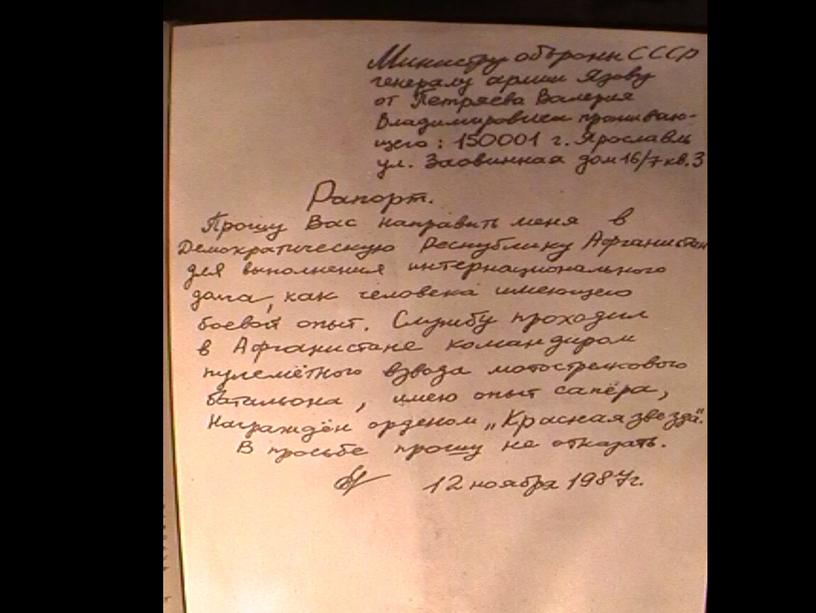 Министру обороны СССР
генералу армии Язову
от Петряева Валерия
Владимировича проживаю-
щего: 150001 г. Ярославль
ул. Заовинная дом 16/7 кв. 3
Рапорт.
Прошу Вас направить меня в
Демократическую Республику Афганистан
для выполнения интернационального
долга, как человека имеющего
боевой опыт. Службу проходил
в Афганистане командиром
пулемётного взвода мотострелкового
батальона, имею опыт сапёра,
Награждён орденом „Красная звезда".
В просьбе прошу не отказать.
12 ноября 1987г.